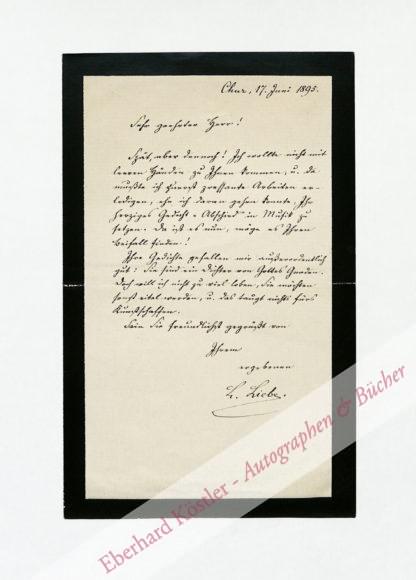 Chur, 17. Juni 1895.
Sehr geehrter Herr!
Spät, aber dennoch! Ich wollte nicht mit
leeren Händen zu Ihnen kommen, u. da
mußte ich zuerst pressante Arbeiten er-
ledigen, ehe ich daran gehen konnte, Ihr
herziges Gedicht "Abschied" in Musik zu
setzen. Da ist es nun, möge es Ihren
Beifall finden!
Ihre Gedichte gefallen mir außerordentlich
gut: Sie sind ein Dichter von Gottes Gnaden.
Doch will ich nicht zu viel loben, Sie möchten
sonst eitel werden, u. das taugt nichts fürs
Kunstschaffen.
Sein Sie freundlichst gegrüßt von
Ihrem
ergebenen
L. Liebe.
Eberhard Köstler - Autographen & Bücher